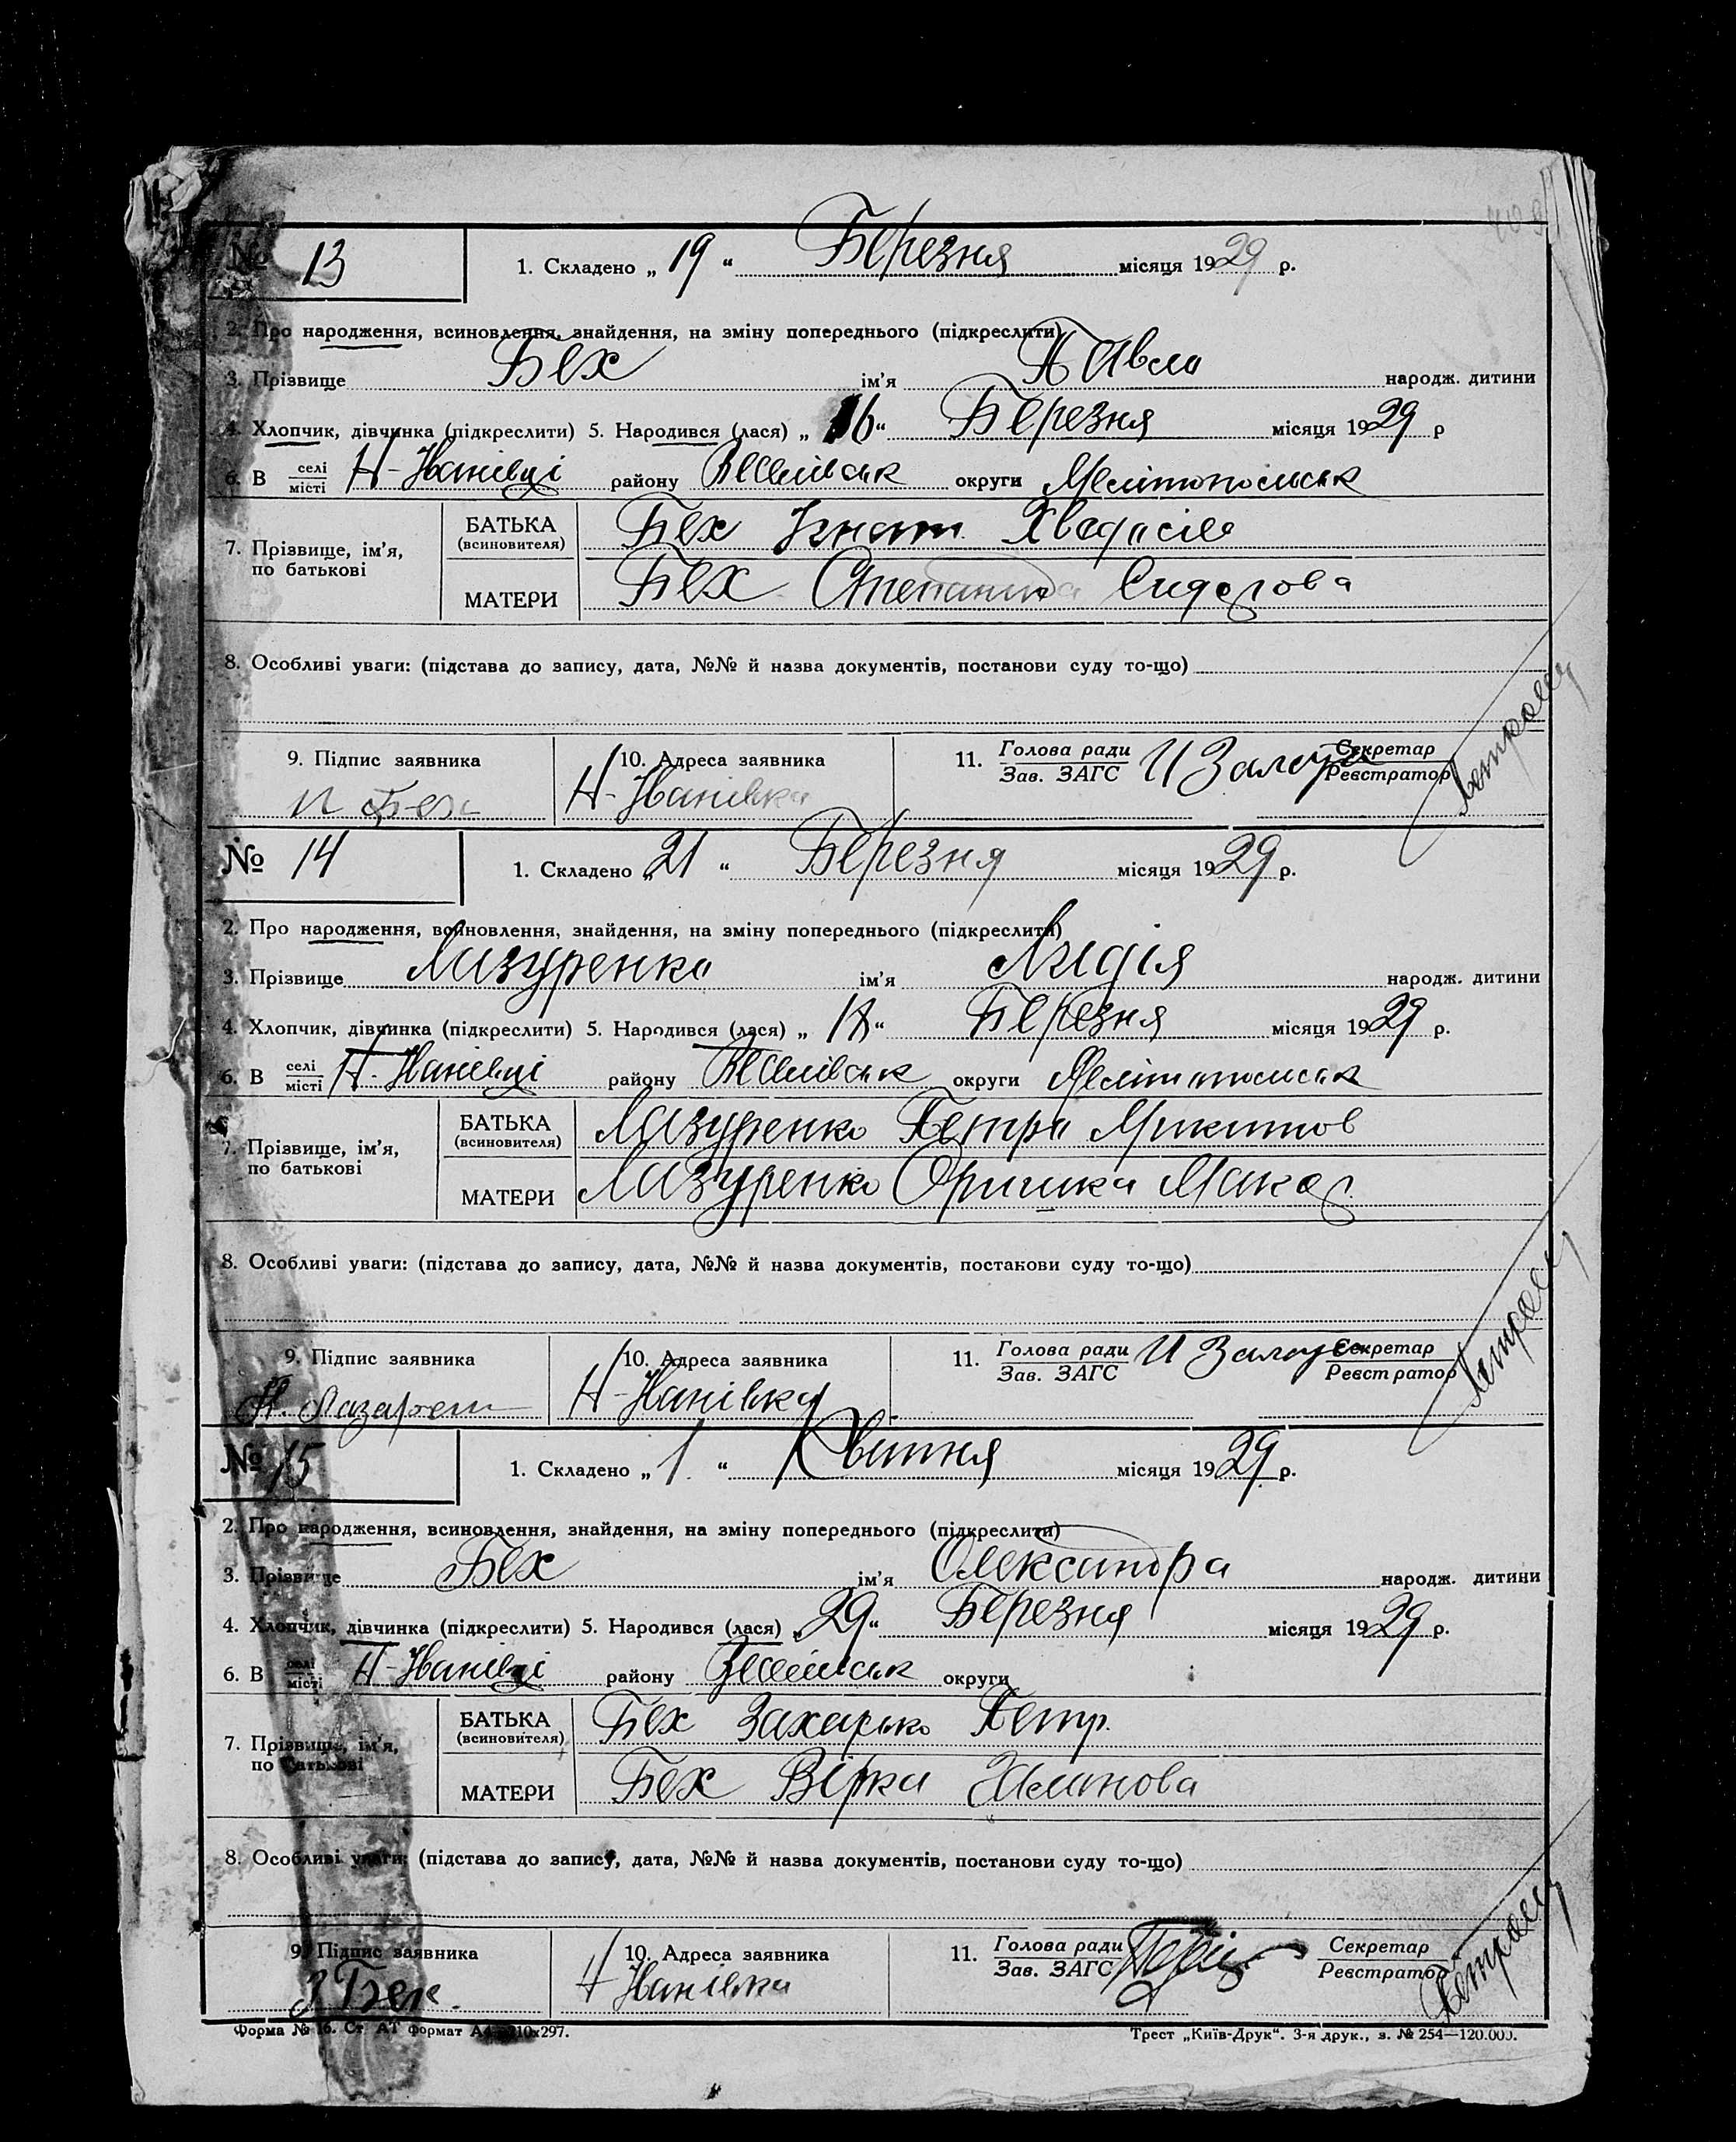 № 13 1. Складено „ 19 “ Березня місяця 1929 р.
2. Про народження, всиновлення, знайдення, на зміну попереднього (підкреслити)
3. Прізвище Бех ім’я Павло народж. дитини
4. Хлопчик, дівчинка (підкреслити) 5. Народився (лася) „ 16 “ Березня місяця 1929 р
6. В селі місті Н-Іванівці району Веселівськ округи Мелітопольськ
7. Прізвище, ім’я, по батькові
БАТЬКА (всиновителя) Бех Ігнат
МАТЕРИ Бех Степанида Сидорова
8. Особливі уваги: (підстава до запису, дата, №№ й назва документів, постанови суду то-що)
9. Підпис заявника 10. Адреса заявника 11. Голова ради Зав. ЗАГС Секретар Реєстратор
И Бех Н-Іванівка
№ 14 1. Складено „ 21 “ Березня місяця 1929 р.
2. Про народження, всиновлення, знайдення, на зміну попереднього (підкреслити)
3. Прізвище Лазуренко ім’я Лидія народж. дитини
4. Хлопчик, дівчинка (підкреслити) 5. Народився (лася) „ 18 “ Березня місяця 1929 р.
6. В селі місті Н-Іванівці району Веселівськ округи Мелітопольськ
7. Прізвище, ім’я, по батькові
БАТЬКА (всиновителя) Лазуренко Петро Микитов
МАТЕРИ Лазуренко Оришка Макар.
8. Особливі уваги: (підстава до запису, дата, №№ й назва документів, постанови суду то-що)
9. Підпис заявника 10. Адреса заявника 11. Голова ради Зав. ЗАГС Секретар Реєстратор
Н-Іванівка
№ 15 1. Складено „ 1 “ Квітня місяця 1929 р.
2. Про народження, всиновлення, знайдення, на зміну попереднього (підкреслити)
3. Прізвище Бех ім’я Олександра народж. дитини
4. Хлопчик, дівчинка (підкреслити) 5. Народився (лася) „ 29 “ Березня місяця 1929 р.
6. В селі місті Н-Іванівці району Веселівськ округи
7. Прізвище, ім’я, по батькові
БАТЬКА (всиновителя) Бех Захарько Петр.
МАТЕРИ Бех Вірка
8. Особливі уваги: (підстава до запису, дата, №№ й назва документів, постанови суду то-що)
9. Підпис заявника 10. Адреса заявника 11. Голова ради Зав. ЗАГС Секретар Реєстратор
З Бех. Н Іванівка
Форма № 16. Ст. АТ формат А4—210х297. Трест „Київ-Друк“. 3-я друк., з. № 254—120.000.